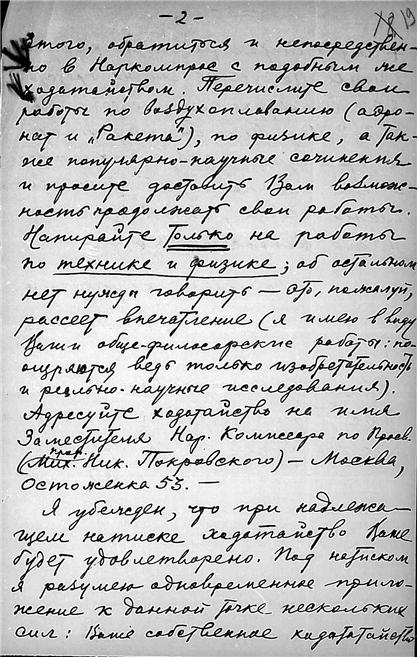 — 2 —
19
этого, обратиться и непосредствен-
но в Наркомпрос с подобным же
ходатайством. Перечислите свои
работы по воздухоплаванию (аэро-
нат и „Ракета"), по физике, а так-
же популярно-научные сочинения
и просите доставить Вам возмож-
ность продолжать свои работы.
Напирайте только на работы
по технике и физике; об остальном
нет нужды говорить — это, пожалуй,
рассеет впечатление (я имею в виду
Ваши обще-философские работы: по-
ощряются ведь только изобретательность
и реально-научные исследования).
Адресуйте ходатайство на имя
Заместителя Нар. Комиссара по Просв.
проф.
(Мих. Ник. Покровского) — Москва,
Остоженка 53. —
Я убежден, что при надлежа-
щем натиске ходатайство Ваше
будет удовлетворено. Под натиском
я разумею одновременное прило-
жение к данной точке нескольких
сил: Ваше собственное ходатайство